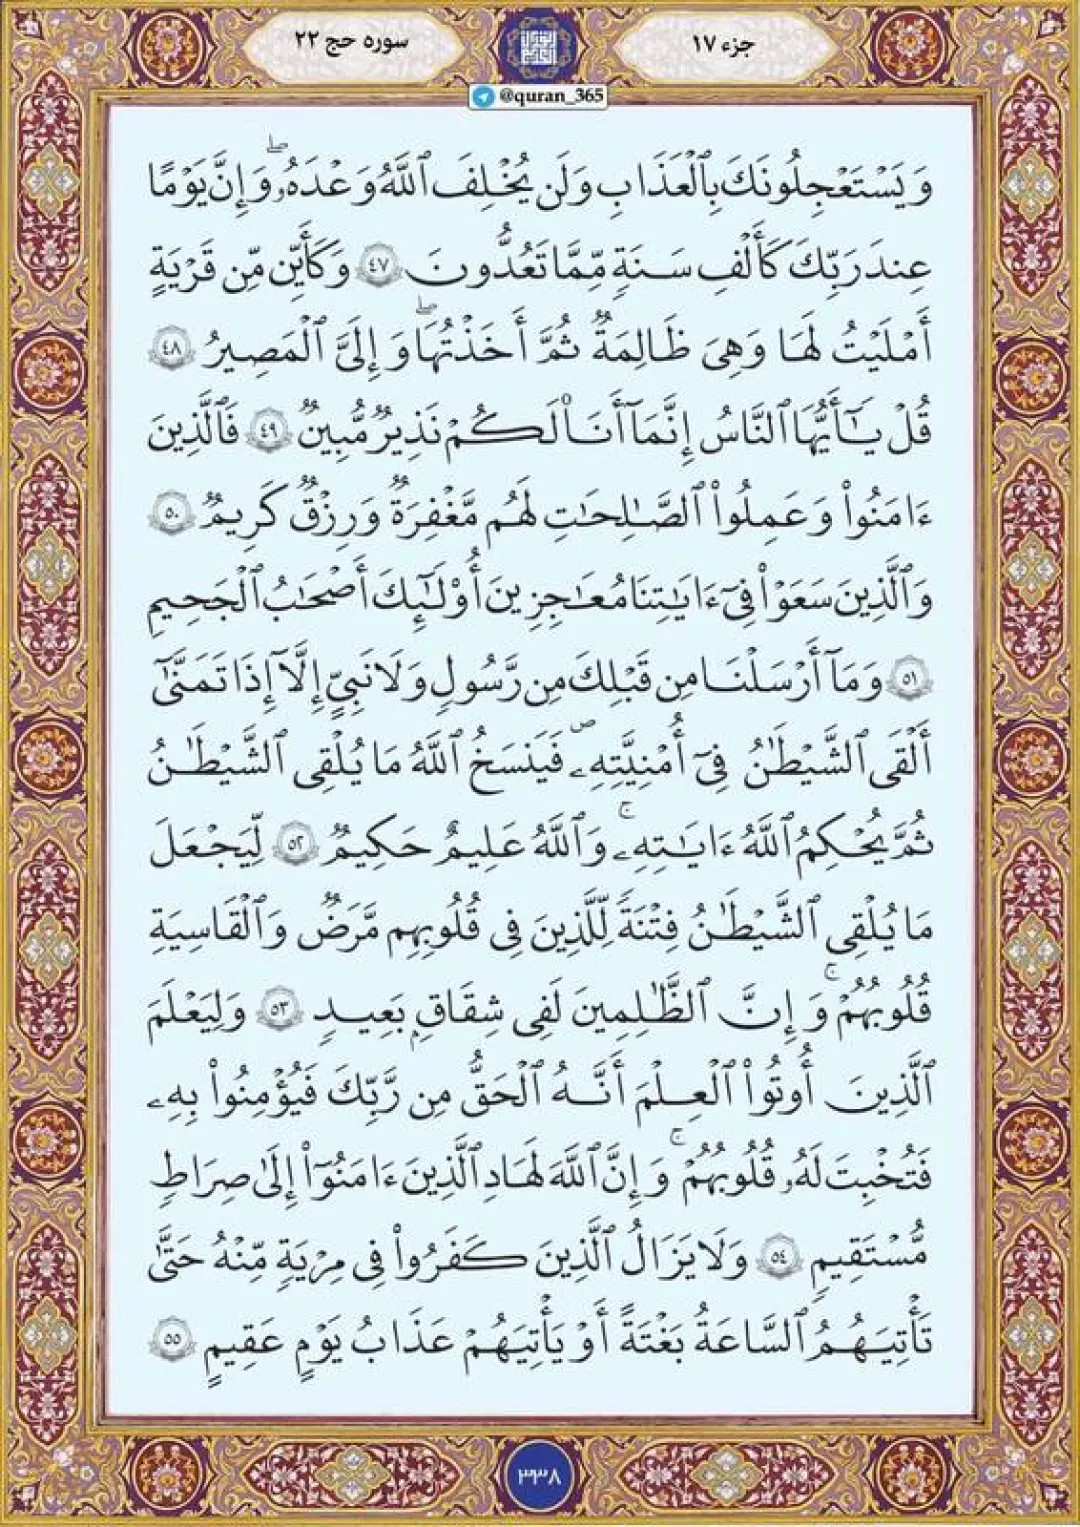 جزء ۱۷
سوره حج ۲۲
@quran_365
وَيَسْتَعْجِلُونَكَ بِٱلْعَذَابِ وَلَن يُخْلِفَ ٱللَّهُ وَعْدَهُۥۖ وَإِنَّ يَوْمًا
عِندَ رَبِّكَ كَأَلْفِ سَنَةٍ مِّمَّا تَعُدُّونَ ٤٧ وَكَأَيِّن مِّن قَرْيَةٍ
أَمْلَيْتُ لَهَا وَهِىَ ظَالِمَةٌ ثُمَّ أَخَذْتُهَاۖ وَإِلَىَّ ٱلْمَصِيرُ ٤٨
قُلْ يَٰٓأَيُّهَا ٱلنَّاسُ إِنَّمَآ أَنَا۠ لَكُمْ نَذِيرٌ مُّبِينٌ ٤٩ فَٱلَّذِينَ
ءَامَنُوا۟ وَعَمِلُوا۟ ٱلصَّٰلِحَٰتِ لَهُم مَّغْفِرَةٌ وَرِزْقٌ كَرِيمٌ ٥٠
وَٱلَّذِينَ سَعَوْا۟ فِىٓ ءَايَٰتِنَا مُعَٰجِزِينَ أُو۟لَٰٓئِكَ أَصْحَٰبُ ٱلْجَحِيمِ
٥١ وَمَآ أَرْسَلْنَا مِن قَبْلِكَ مِن رَّسُولٍ وَلَا نَبِىٍّ إِلَّآ إِذَا تَمَنَّىٰٓ
أَلْقَى ٱلشَّيْطَٰنُ فِىٓ أُمْنِيَّتِهِۦ ۖ فَيَنسَخُ ٱللَّهُ مَا يُلْقِى ٱلشَّيْطَٰنُ
ثُمَّ يُحْكِمُ ٱللَّهُ ءَايَٰتِهِۦۚ وَٱللَّهُ عَلِيمٌ حَكِيمٌ ٥٢ لِّيَجْعَلَ
مَا يُلْقِى ٱلشَّيْطَٰنُ فِتْنَةً لِّلَّذِينَ فِى قُلُوبِهِم مَّرَضٌ وَٱلْقَاسِيَةِ
قُلُوبُهُمْۚ وَإِنَّ ٱلظَّٰلِمِينَ لَفِى شِقَاقٍۭ بَعِيدٍ ٥٣ وَلِيَعْلَمَ
ٱلَّذِينَ أُوتُوا۟ ٱلْعِلْمَ أَنَّهُ ٱلْحَقُّ مِن رَّبِّكَ فَيُؤْمِنُوا۟ بِهِۦ
فَتُخْبِتَ لَهُۥ قُلُوبُهُمْۚ وَإِنَّ ٱللَّهَ لَهَادِ ٱلَّذِينَ ءَامَنُوٓا۟ إِلَىٰ صِرَاطٍ
مُّسْتَقِيمٍ ٥٤ وَلَا يَزَالُ ٱلَّذِينَ كَفَرُوا۟ فِى مِرْيَةٍ مِّنْهُ حَتَّىٰ
تَأْتِيَهُمُ ٱلسَّاعَةُ بَغْتَةً أَوْ يَأْتِيَهُمْ عَذَابُ يَوْمٍ عَقِيمٍ ٥٥
٣٣٨